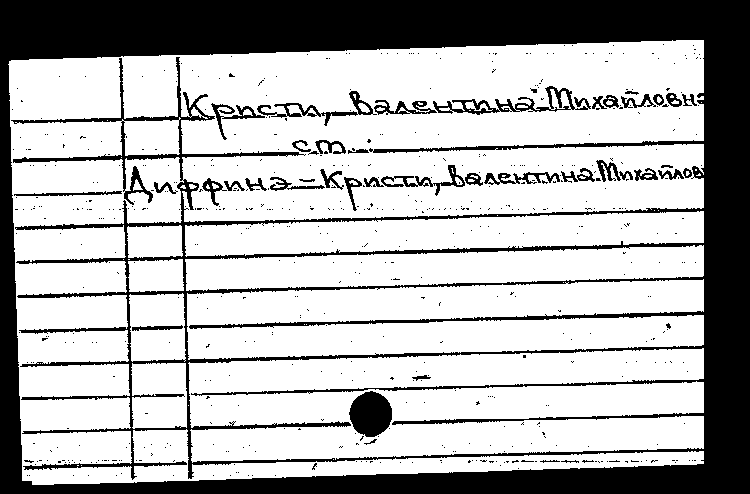 Кристи, Валентина Михайловна
ст.:
Диффина-Кристи, Валентина Михайлов